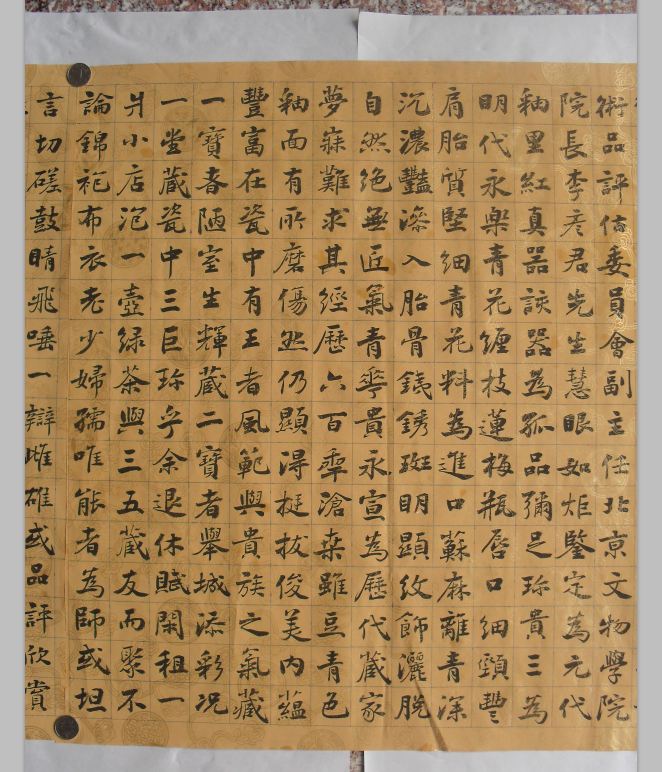 術品評估委員會副主任北京文物學院
院長李彦君先生慧眼如炬鑒定為元代
釉里紅真器該器為孤品彌足珍貴三為
明代永樂青花纏枝蓮梅瓶唇口細頸豐
肩胎質堅細青花料為進口蘇麻離青深
沉濃豔深入胎骨銕銹斑明顯紋飾灑脫
自然絕無匠氣青華貴永宣為歷代藏家
夢寐難求其經歷六百秊滄桒雖豆青色
釉面有所磨傷然仍顯得挺拔俊美内蘊
豐富在瓷中有王者風範與貴族之氣藏
一寶者陋室生輝藏二寶者舉城添彩况
一堂藏瓷中三巨珍乎余退休賦閑租一
爿小店泡一壺绿茶與三五藏友而聚不
論錦袍布衣老少婦孺唯能者為師或坦
言切磋鼓睛飛唾一辯雌雄或品評欣賞